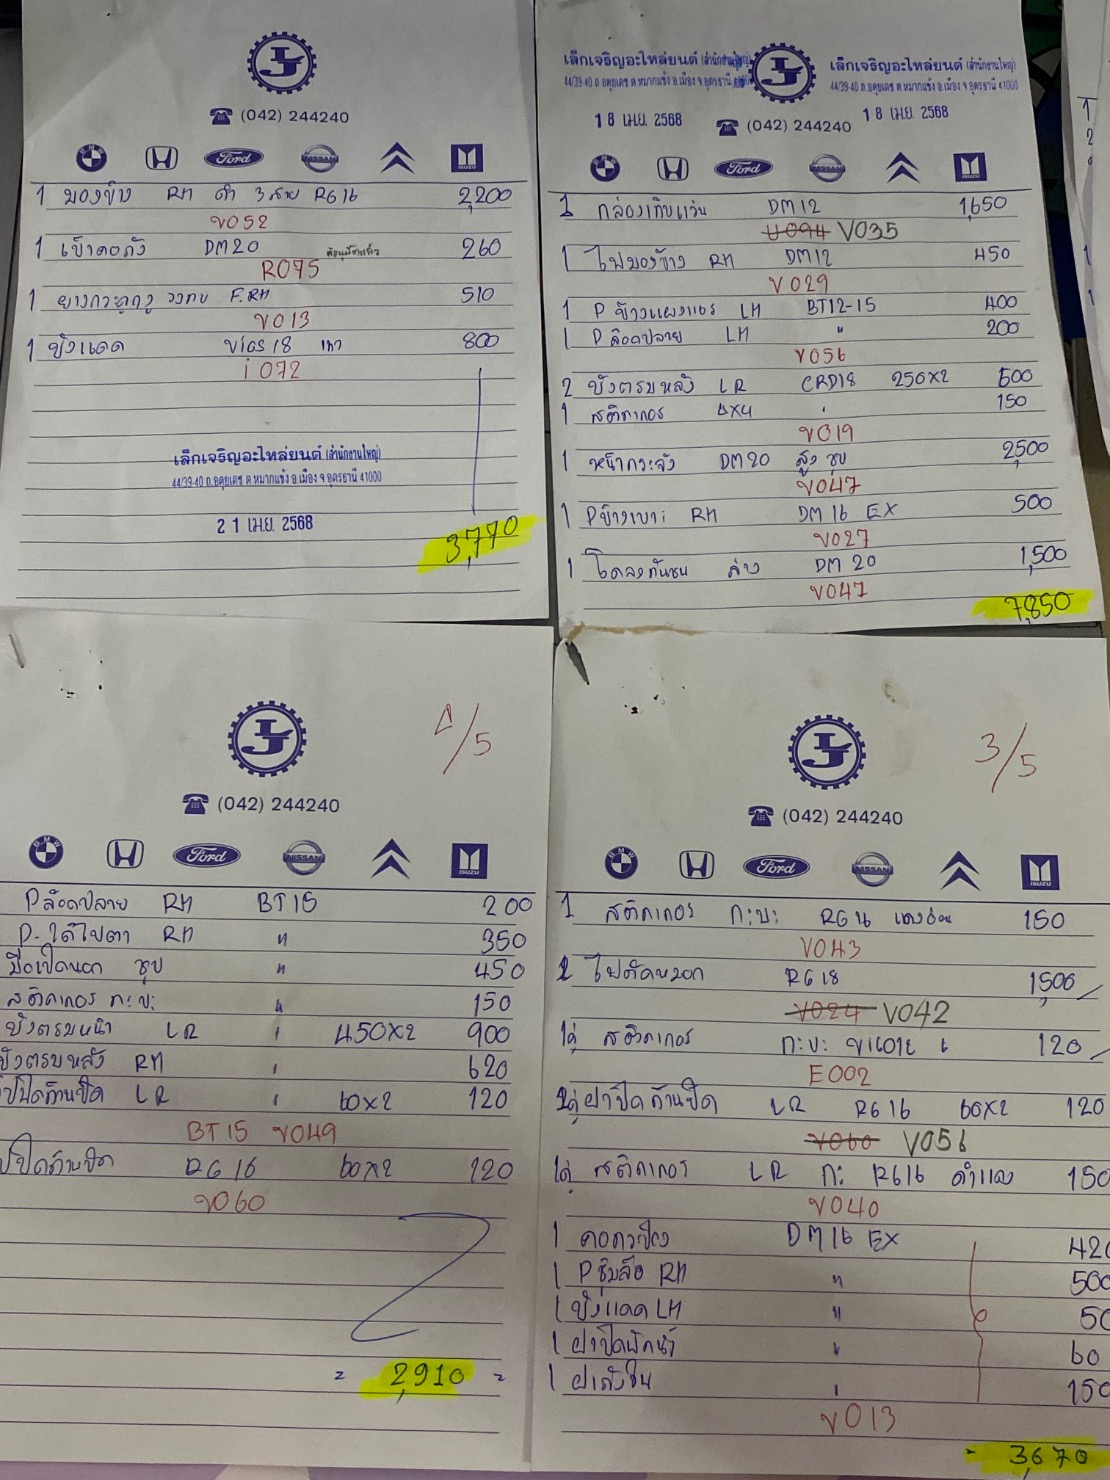 LJ
☎ (042) 244240
BMW HONDA Ford NISSAN ISUZU
1 มองข้าง RH ดำ 3 สาย RG16 2,200
V052
1 เบ้าคอถัง DM20 260
R075
1 ยางกระดูกงู วงกบ F.RH 510
V013
1 บังแดด Vios 18 เทา 800
i 072
เล็กเจริญอะไหล่ยนต์ (สำนักงานใหญ่)
44/39-40 ถ.อดุยเดช ต.หมากแข้ง อ.เมือง จ.อุดรธานี 41000
21 เม.ย. 2568
3,770
เล็กเจริญอะไหล่ยนต์ (สำนักงานใหญ่)
44/39-40 ถ.อดุยเดช ต.หมากแข้ง อ.เมือง จ.อุดรธานี
เล็กเจริญอะไหล่ยนต์ (สำนักงานใหญ่)
44/39-40 ถ.อดุยเดช ต.หมากแข้ง อ.เมือง จ.อุดรธานี 41000
LJ
18 เม.ย. 2568 ☎ (042) 244240 18 เม.ย. 2568
Ford NISSAN ISUZU
1 กล่องเก็บแว่น DM12 1,650
V094 V035
1 ไฟมองข้าง RH DM12 450
V029
1 P ข้างแผงแอร์ LH BT12-15 400
1 P ล๊อคปลาย LH " 200
V056
2 บังตรมหลัง LR CRD18 250x2 500
1 สติกเกอร์ 4x4 " 150
V019
1 หน้ากระจัง DM20 สูง ชุบ 2,500
V047
1 Pข้างเบาะ RH DM16 EX 500
V027
1 โดลงกันชน ล่าง DM20 1,500
V047
7,850
4/5
LJ
☎ (042) 244240
BMW Ford NISSAN ISUZU
Pล๊อคปลาย RH BT15 200
P-ใต้ไฟตา RH " 350
มือเปิดนอก ชุบ " 450
สติกเกอร์ ก:บ: " 150
บังตรมหน้า LR " 450x2 900
บังตรมหลัง RH " 620
ปิดก้านปัด LR " 60x2 120
BT15 V049
ปิดก้านปัด RG16 60x2 120
V060
= 2,910 =
3/5
LJ
☎ (042) 244240
Ford NISSAN ISUZU
1 สติกเกอร์ ก:บ: RG16 150
V043
2 ไฟตัดหมอก RG18 1,500
V024 V042
1คู่ สติกเกอร์ ก:บ: 120
E002
1คู่ ฝาปิดก้านปัด LR RG16 60x2 120
V060 V056
1คู่ สติกเกอร์ LR ก: RG16 ดำแดง 150
V040
1 คอกระป๋อง DM16 EX 420
1 Pซุ้มล้อ RH " 500
1 บังแดด LH " 50
1 ฝาปิดพักน้ำ " 60
1 ฝาถังใน " 150
V013
- 3,670